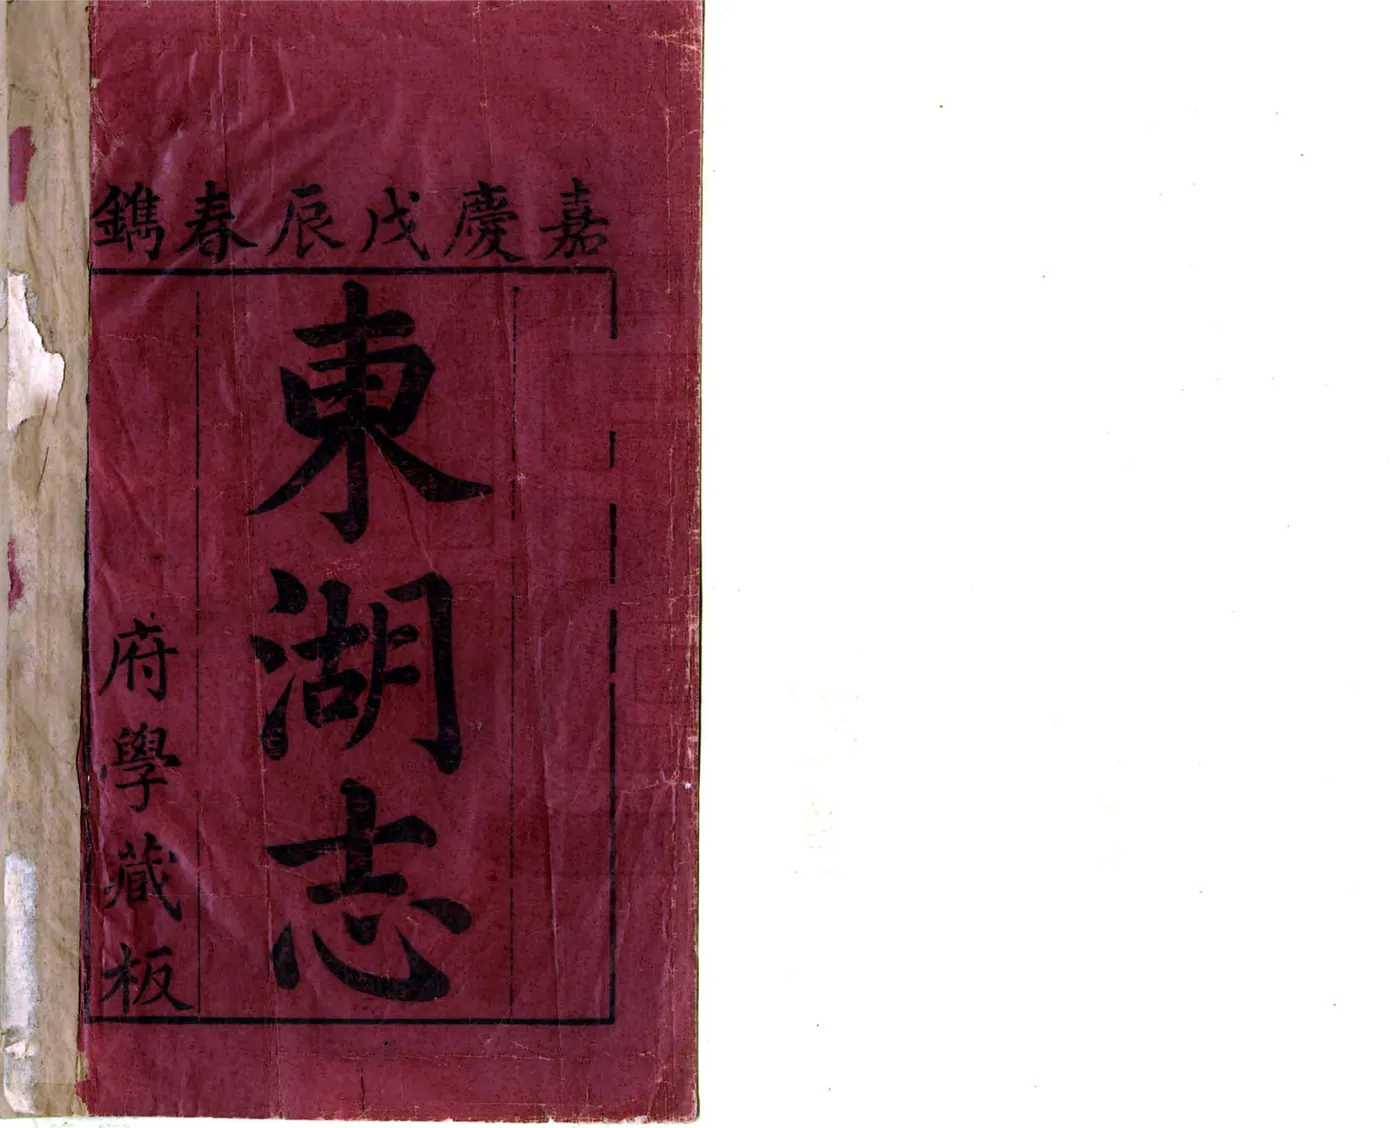 嘉慶戊辰春鐫
東湖志
府學藏板